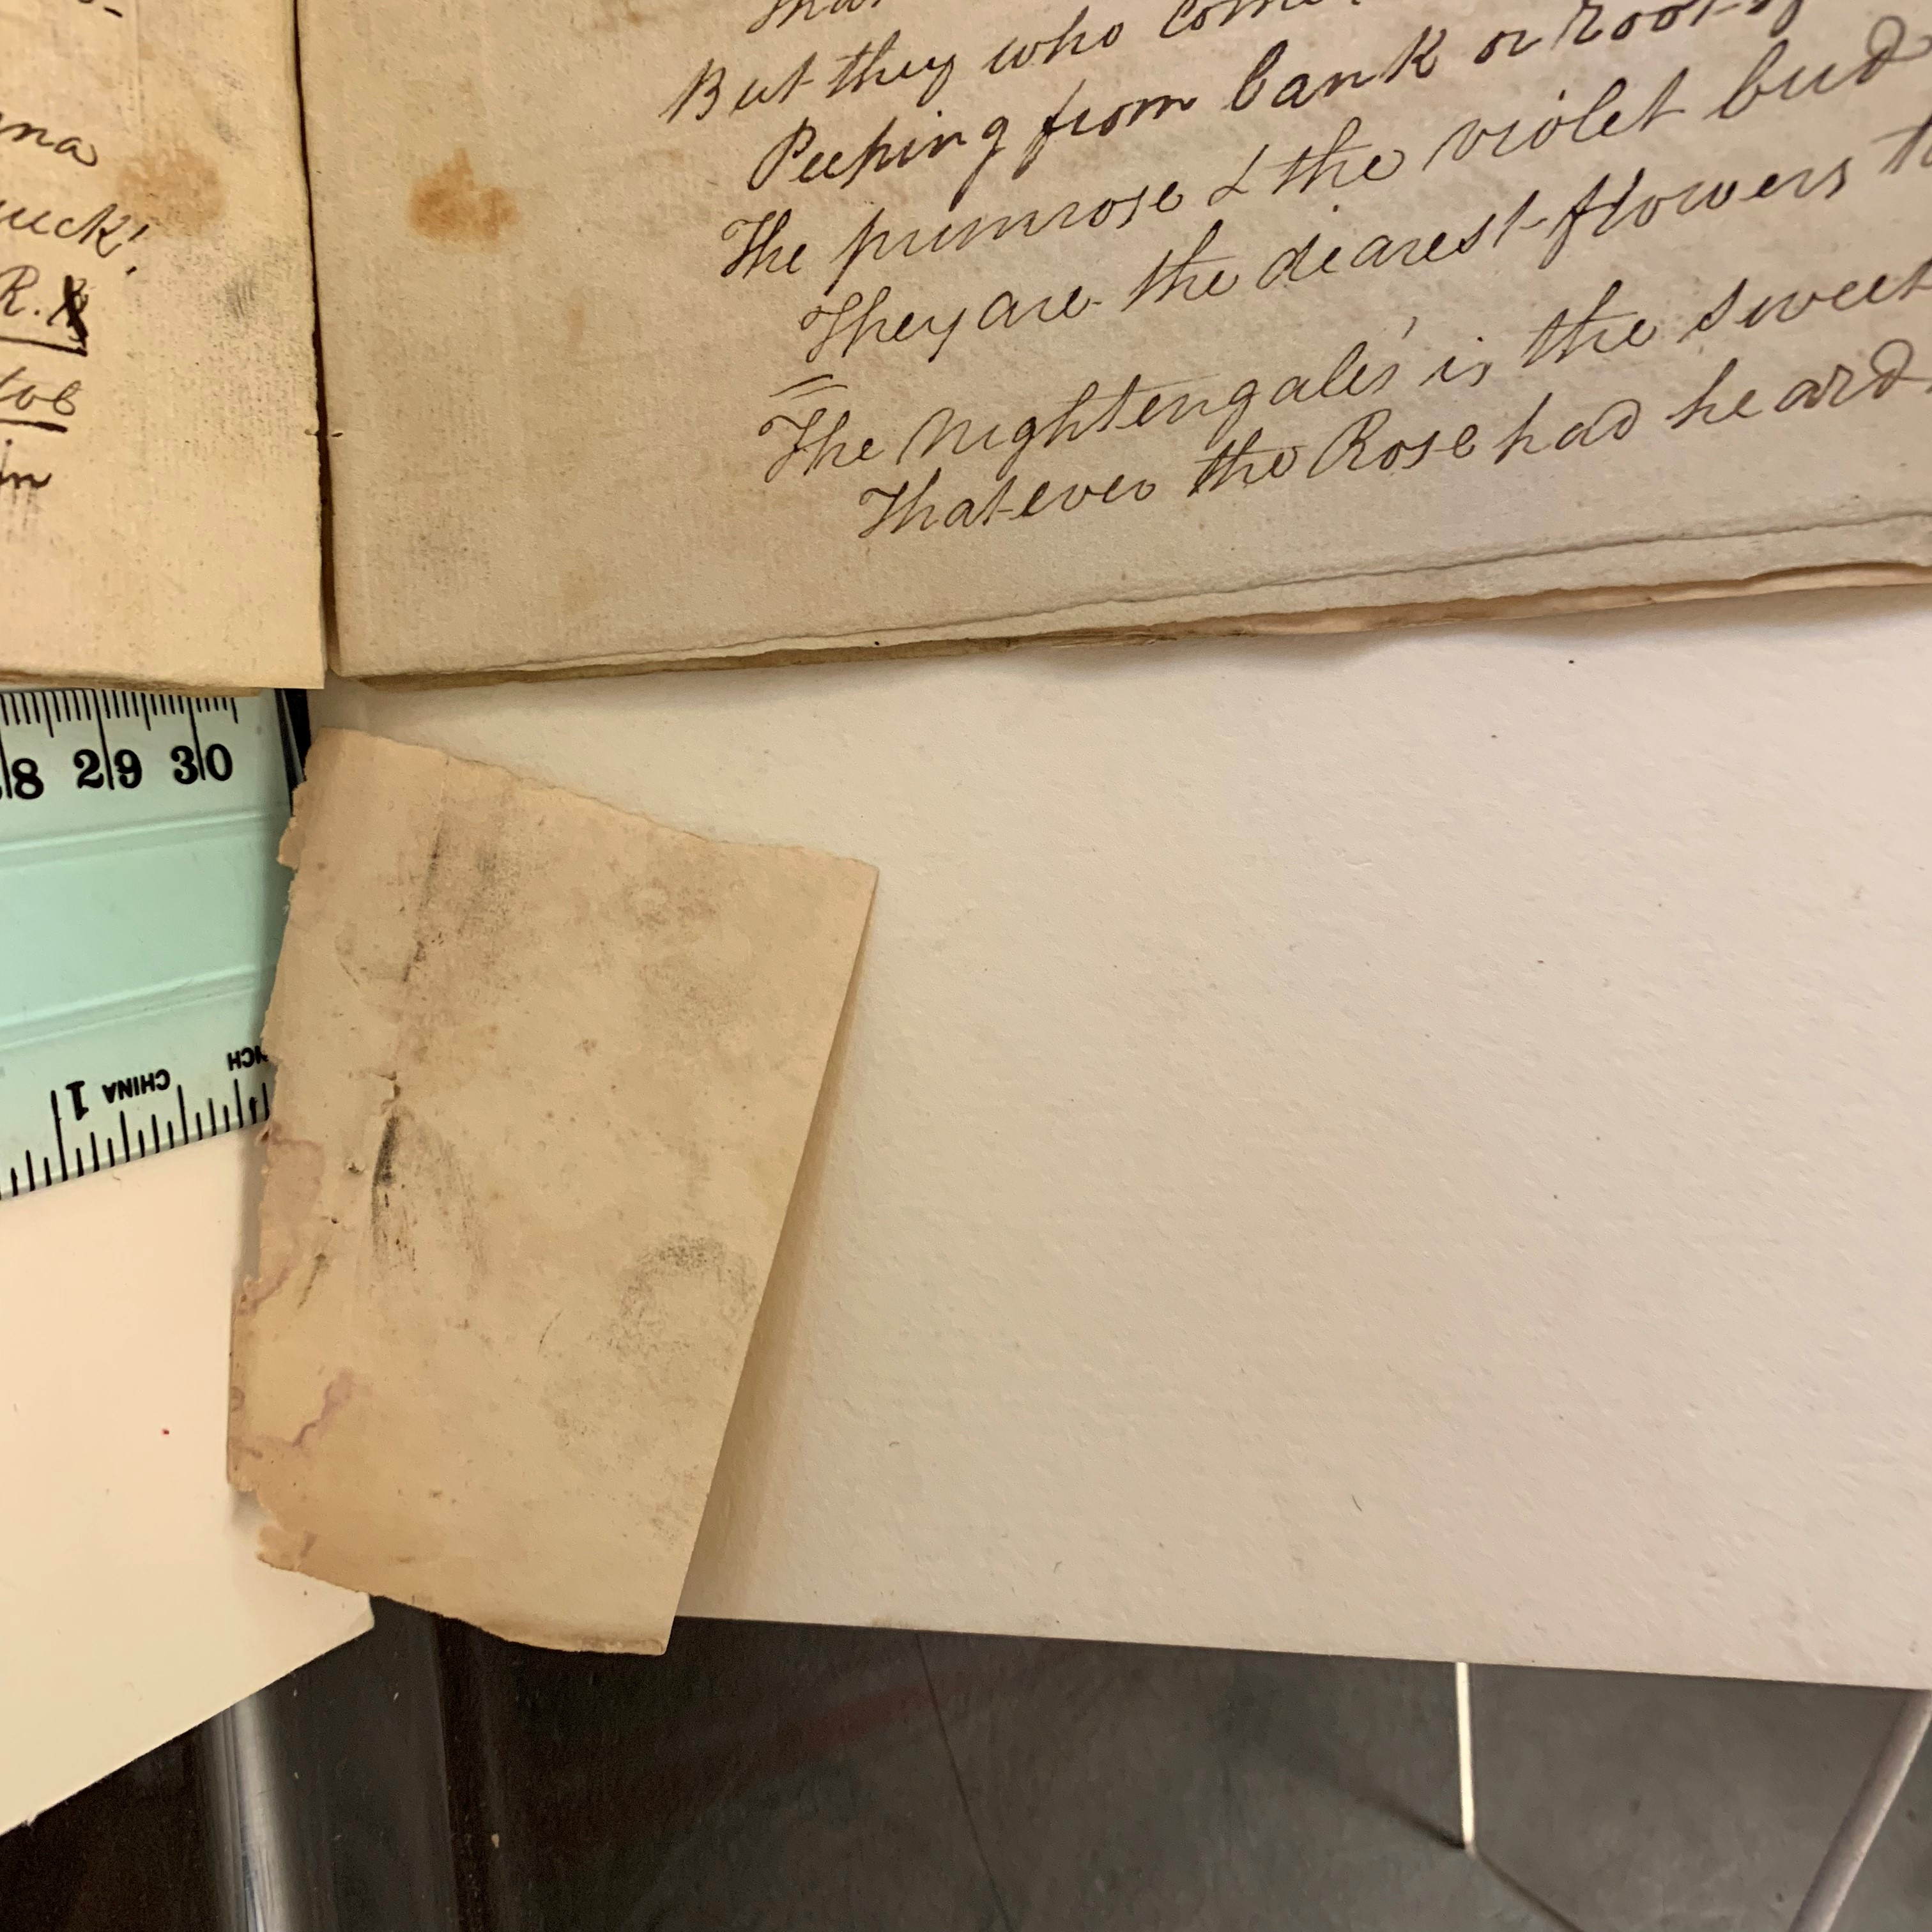 ma
uck!
R.
tob
in
But they who come
Peeping from bank or root of
The primrose & the violet bud
They are the dearest flowers
The Nightengales' is the sweet
That ever the Rose had heard
8 29 30
1 CHINA